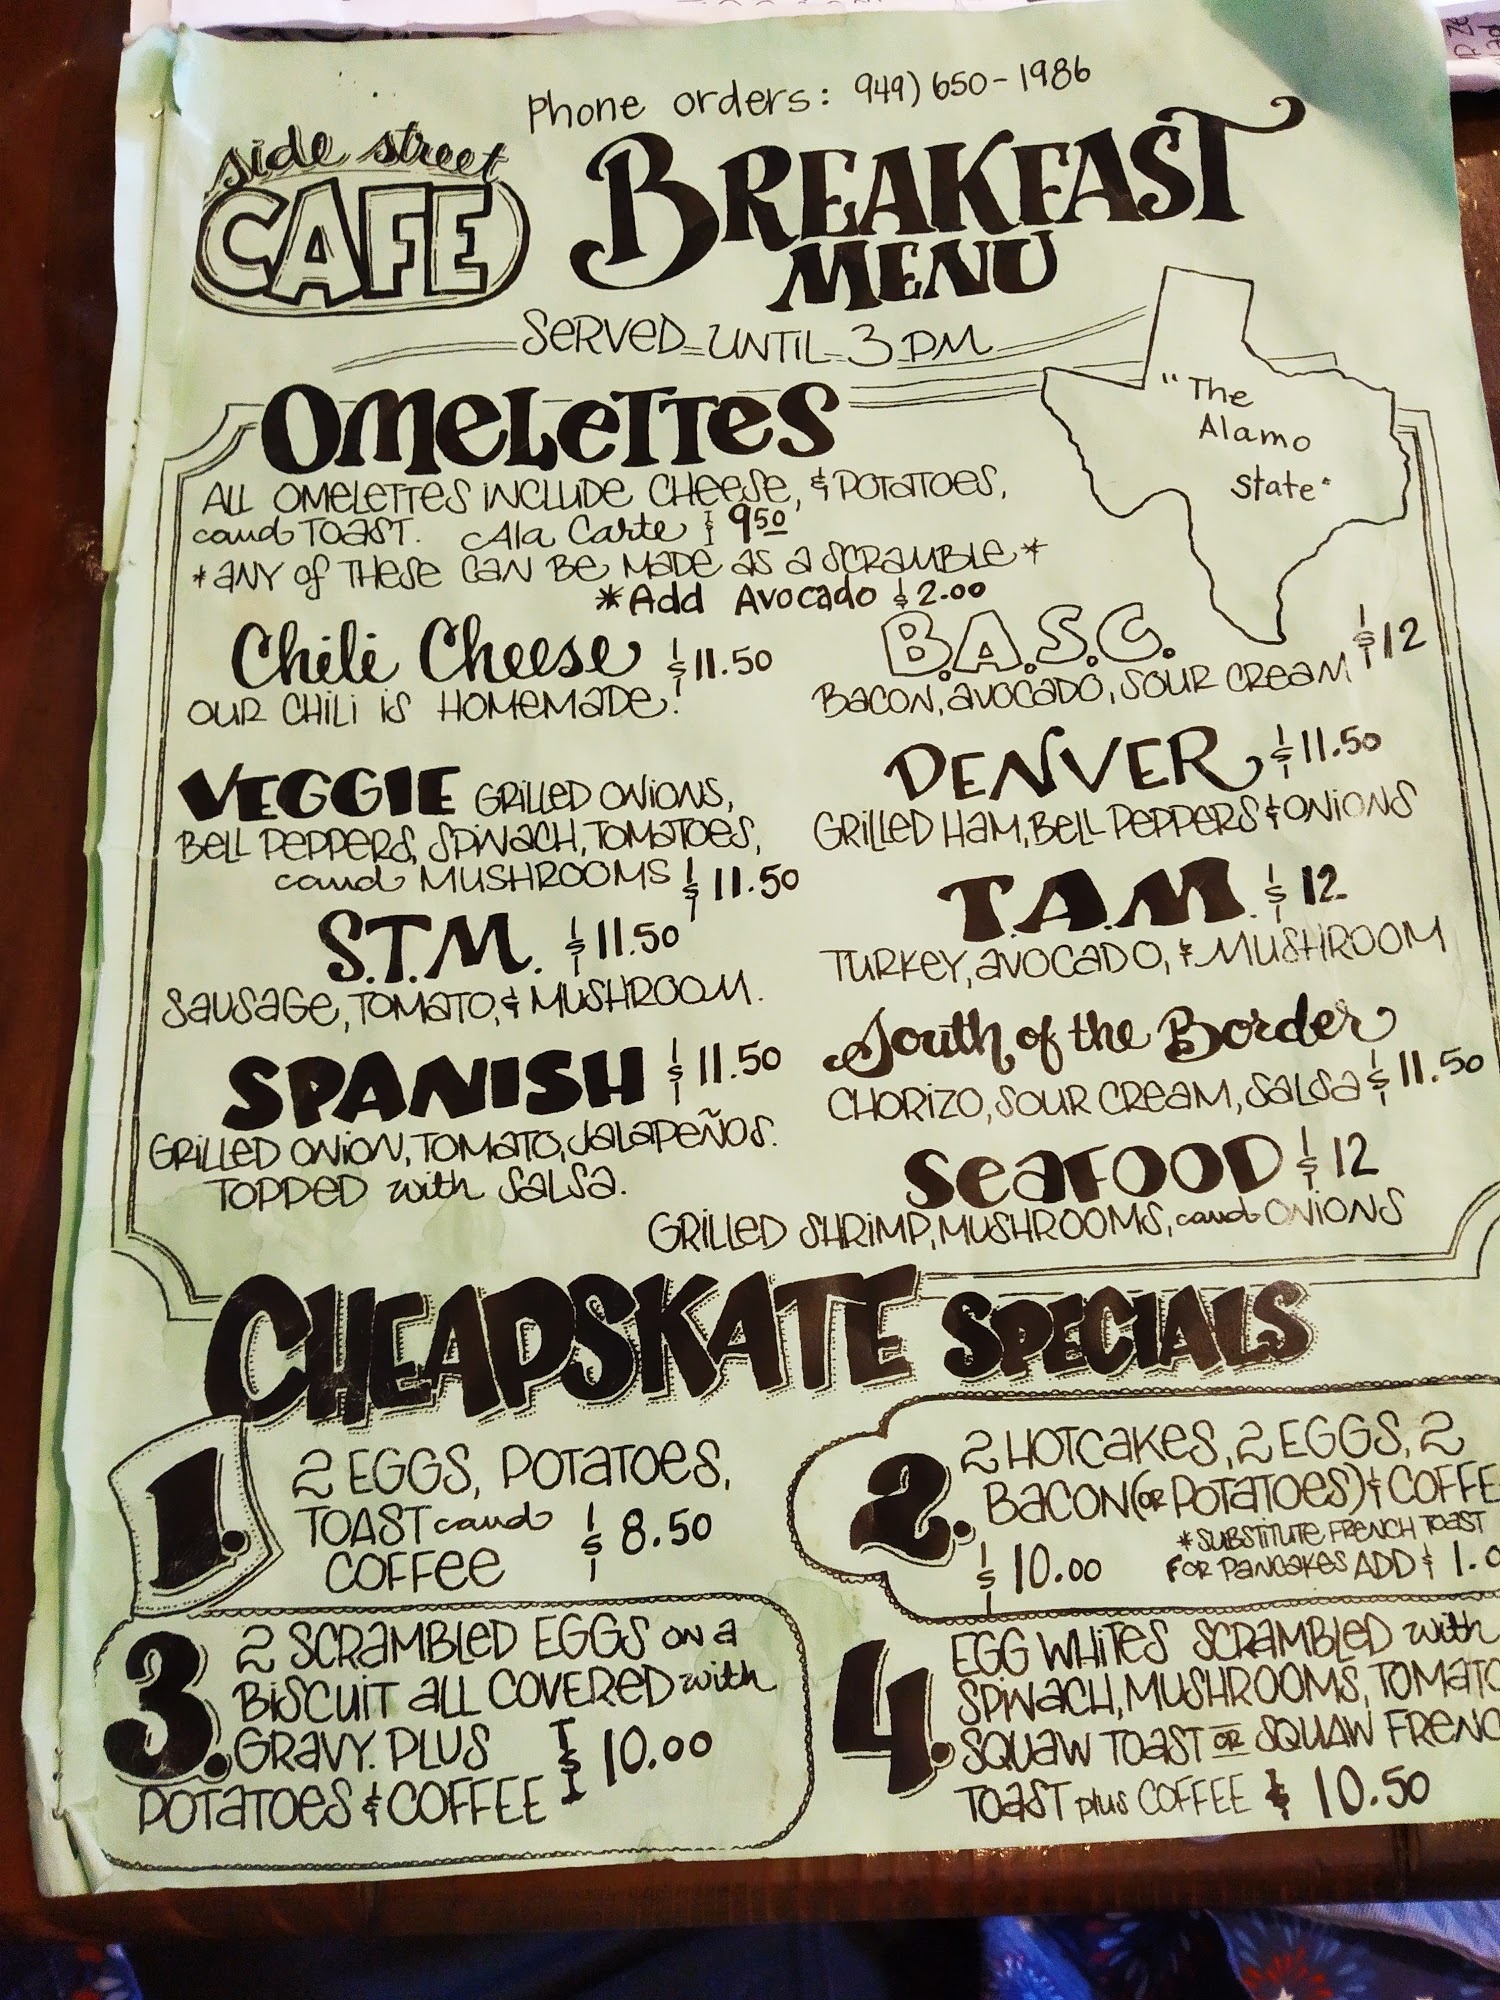 Phone orders: 949) 650-1986
side street
CAFE
BREAKFAST
MENU
SERVED UNTIL 3 PM
"The
Alamo
State"
OMELETTES
ALL OMELETTES INCLUDE CHEESE, & POTATOES,
and TOAST. Ala Carte $ 9.50
*ANY OF THESE CAN BE MADE AS A SCRAMBLE*
*Add Avocado $2.00
Chili Cheese $11.50
OUR CHILI IS HOMEMADE!
VEGGIE GRILLED ONIONS,
BELL PEPPERS, SPINACH, TOMATOES,
and MUSHROOMS $11.50
S.T.M. $11.50
SAUSAGE, TOMATO, & MUSHROOM.
SPANISH $11.50
GRILLED ONION, TOMATO, JALAPEÑOS.
TOPPED with SALSA.
B.A.S.C. $12
BACON, AVOCADO, SOUR CREAM
DENVER $11.50
GRILLED HAM, BELL PEPPERS & ONIONS
T.A.M. $12
TURKEY, AVOCADO, & MUSHROOM
South of the Border
CHORIZO, SOUR CREAM, SALSA $11.50
SEAFOOD $12
GRILLED SHRIMP, MUSHROOMS, and ONIONS
CHEAPSKATE SPECIALS
1. 2 EGGS, POTATOES,
TOAST and $8.50
COFFEE
2. 2 HOTCAKES, 2 EGGS, 2
BACON (OR POTATOES) & COFFE
*SUBSTITUTE FRENCH TOAST
$10.00 FOR PANCAKES ADD $1.0
3. 2 SCRAMBLED EGGS ON A
BISCUIT ALL COVERED with
GRAVY. PLUS $10.00
POTATOES & COFFEE
4. EGG WHITES SCRAMBLED with
SPINACH, MUSHROOMS, TOMATO
SQUAW TOAST OR SQUAW FRENC
TOAST plus COFFEE $10.50